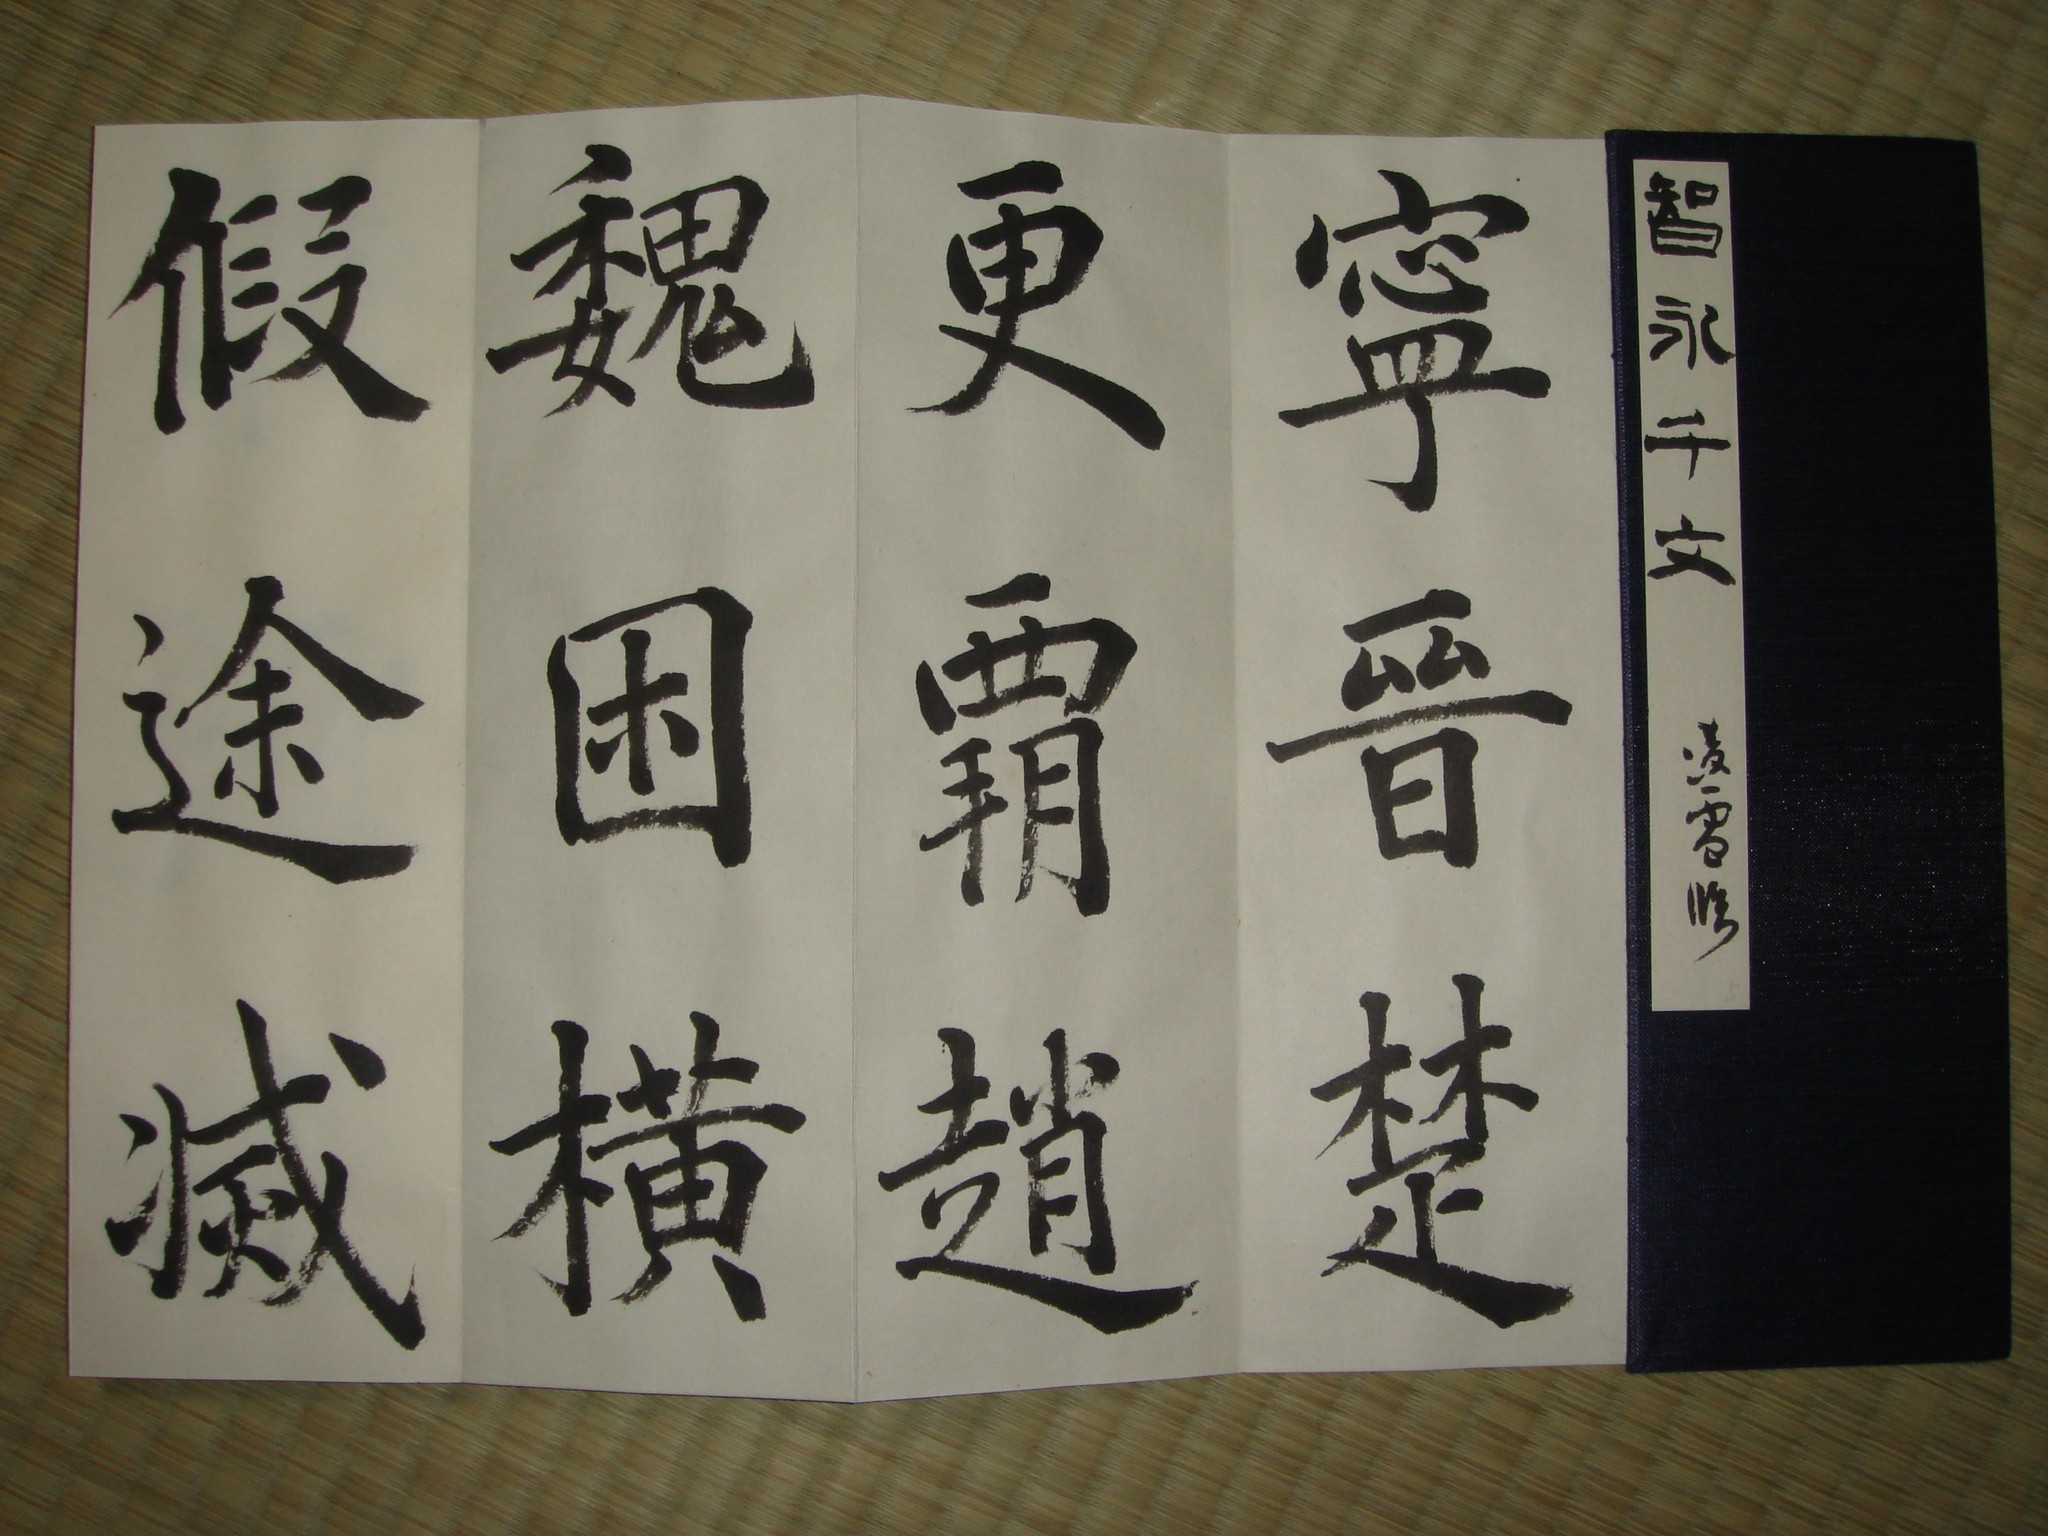 智永千文
凌雪臨
寧晉楚
更覇趙
魏困横
假途滅